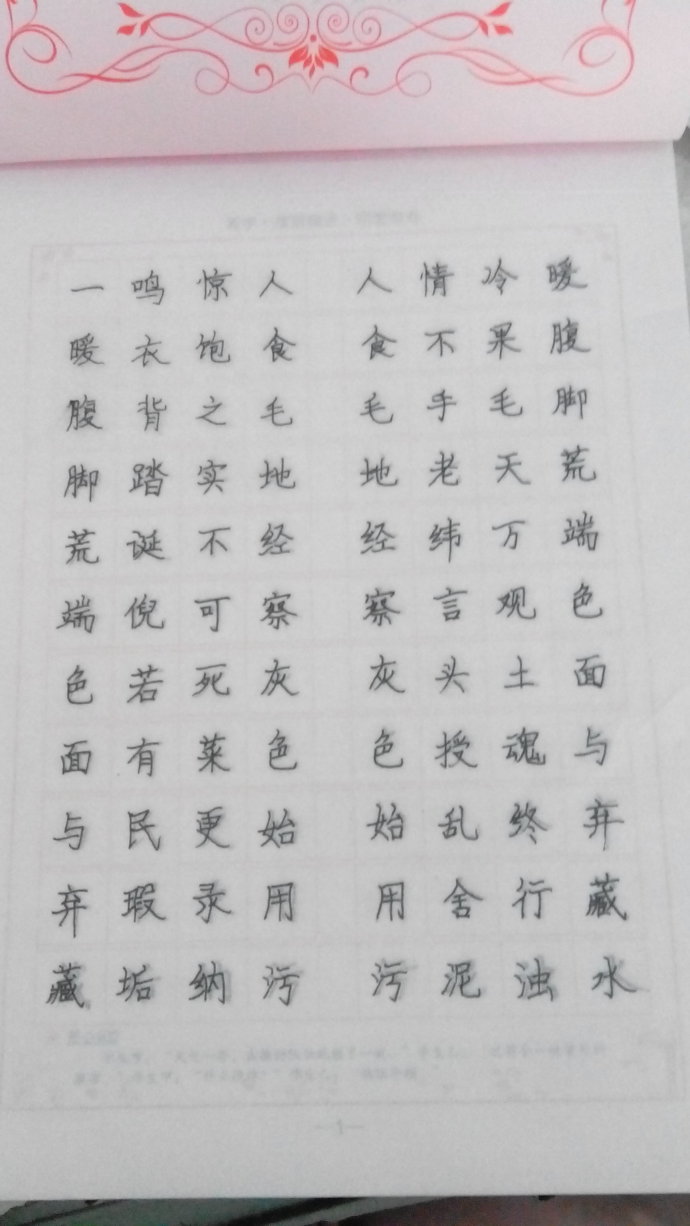 一鸣惊人 人情冷暖
暖衣饱食 食不果腹
腹背之毛 毛手毛脚
脚踏实地 地老天荒
荒诞不经 经纬万端
端倪可察 察言观色
色若死灰 灰头土面
面有菜色 色授魂与
与民更始 始乱终弃
弃瑕录用 用舍行藏
藏垢纳污 污泥浊水
—1—